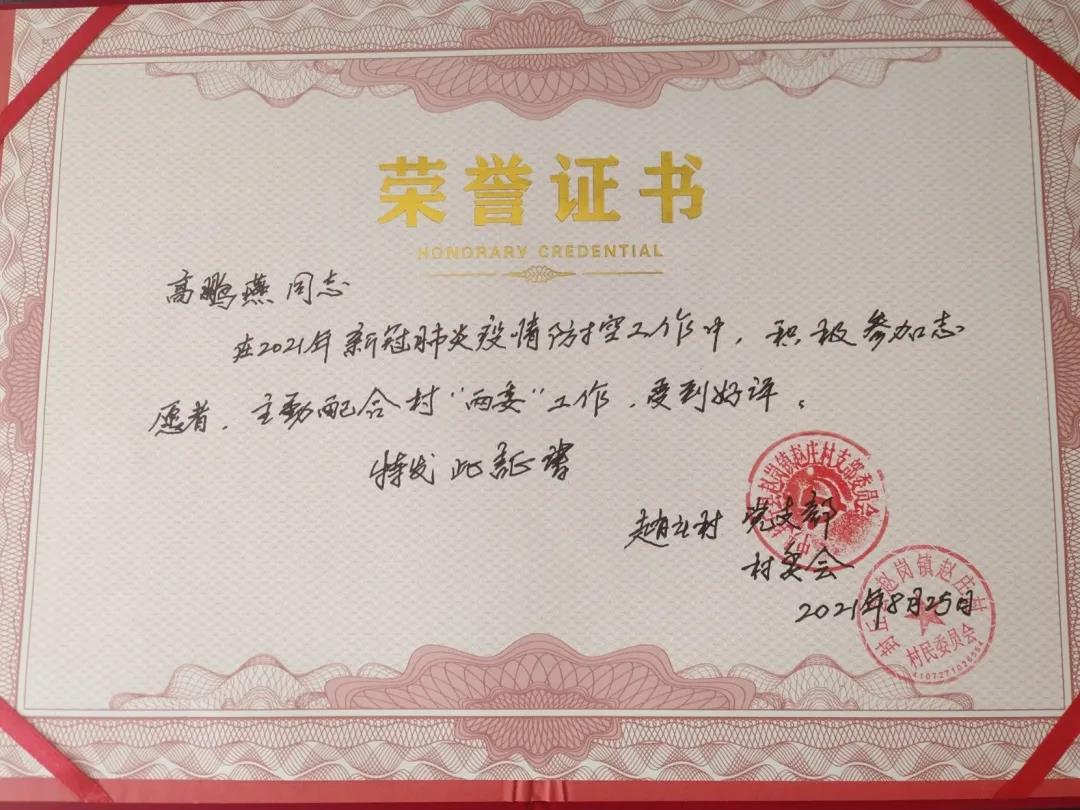 荣誉证书
HONORARY CREDENTIAL
高鹏燕同志
在2021年新冠肺炎疫情防控工作中，积极参加志
愿者，主动配合村“两委”工作，受到好评。
特发此証書
赵庄村 党支部
村委会
2021年8月25日
赵岗镇赵庄村支部委员会
封丘县赵岗镇赵庄村
村民委员会